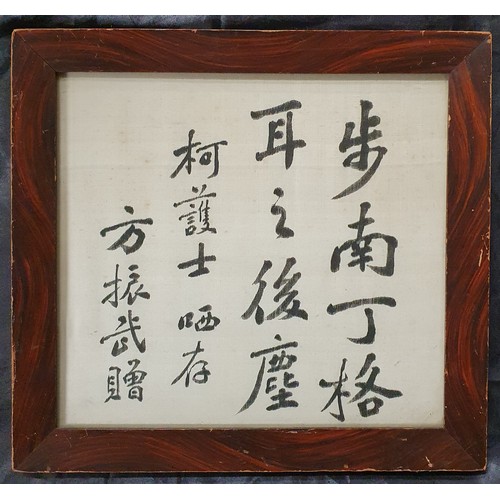 步南丁格
耳之後塵
柯護士 哂存
方振武贈